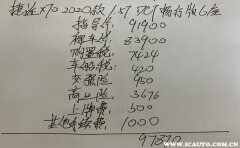 捷途X70 2020款 1.5T DCT 畅行版6座
指导价 91900
裸车价 83900
购置税: 7424
车船税: 420
交强险 950
商业险 3676
上牌费 500
其他手续费: 1000
97870
WWW.XCAUTO.COM.CN